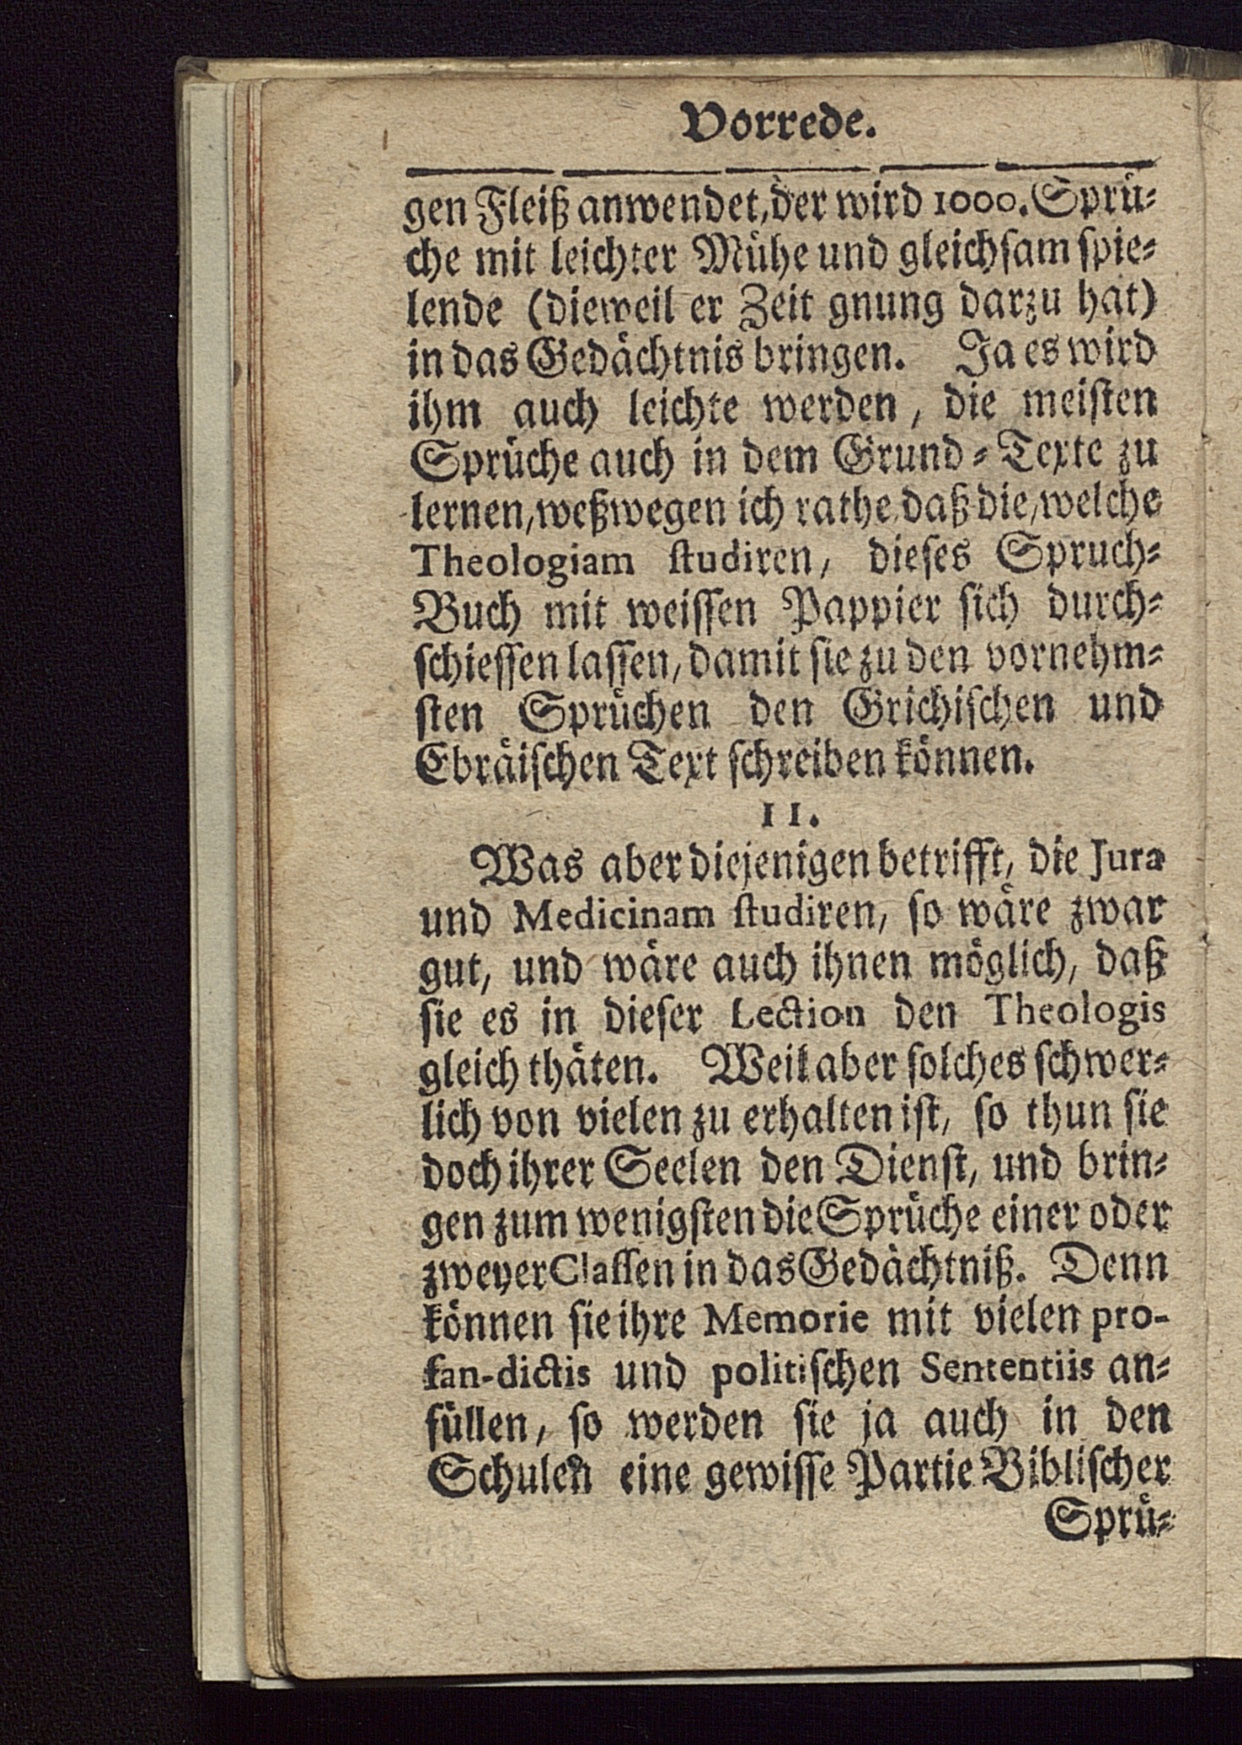 Vorrede.
gen Fleiß anwendet, der wird 1000. Sprü-
che mit leichter Mühe und gleichsam spie-
lende (dieweil er Zeit gnung darzu hat)
in das Gedächtnis bringen. Ja es wird
ihm auch leichte werden, die meisten
Sprüche auch in dem Grund-Texte zu
lernen, weßwegen ich rathe, daß die, welche
Theologiam studiren, dieses Spruch-
Buch mit weissen Pappier sich durch-
schiessen lassen, damit sie zu den vornehm-
sten Sprüchen den Grichischen und
Ebräischen Text schreiben können.
II.
Was aber diejenigen betrifft, die Jura
und Medicinam studiren, so wäre zwar
gut, und wäre auch ihnen möglich, daß
sie es in dieser Lection den Theologis
gleich thäten. Weil aber solches schwer-
lich von vielen zu erhalten ist, so thun sie
doch ihrer Seelen den Dienst, und brin-
gen zum wenigsten die Sprüche einer oder
zweyer Classen in das Gedächtniß. Denn
können sie ihre Memorie mit vielen pro-
fan-dictis und politischen Sententiis an-
füllen, so werden sie ja auch in den
Schulen eine gewisse Partie Biblischer
Sprü-